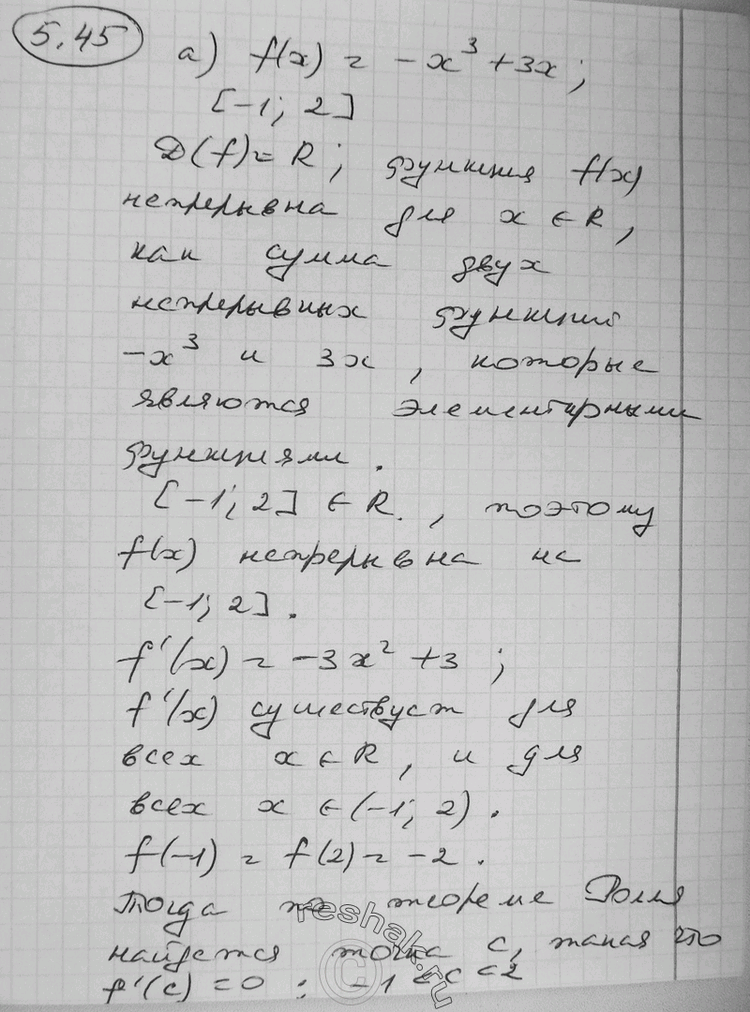 5.45
а) f(x) = -x³ + 3x ;
[-1; 2]
D(f) = R ; функция f(x)
непрерывна для x ∈ R ,
как сумма двух
непрерывных функций
-x³ и 3x , которые
являются элементарными
функциями .
[-1; 2] ∈ R. , поэтому
f(x) непрерывна на
[-1; 2] .
f'(x) = -3x² + 3 ;
f'(x) существует для
всех x ∈ R , и для
всех x ∈ (-1; 2) .
f(-1) = f(2) = -2 .
Тогда по теореме Ролля
найдется точка c, такая что
f'(c) = 0 : -1 < c < 2
reshak.ru
©